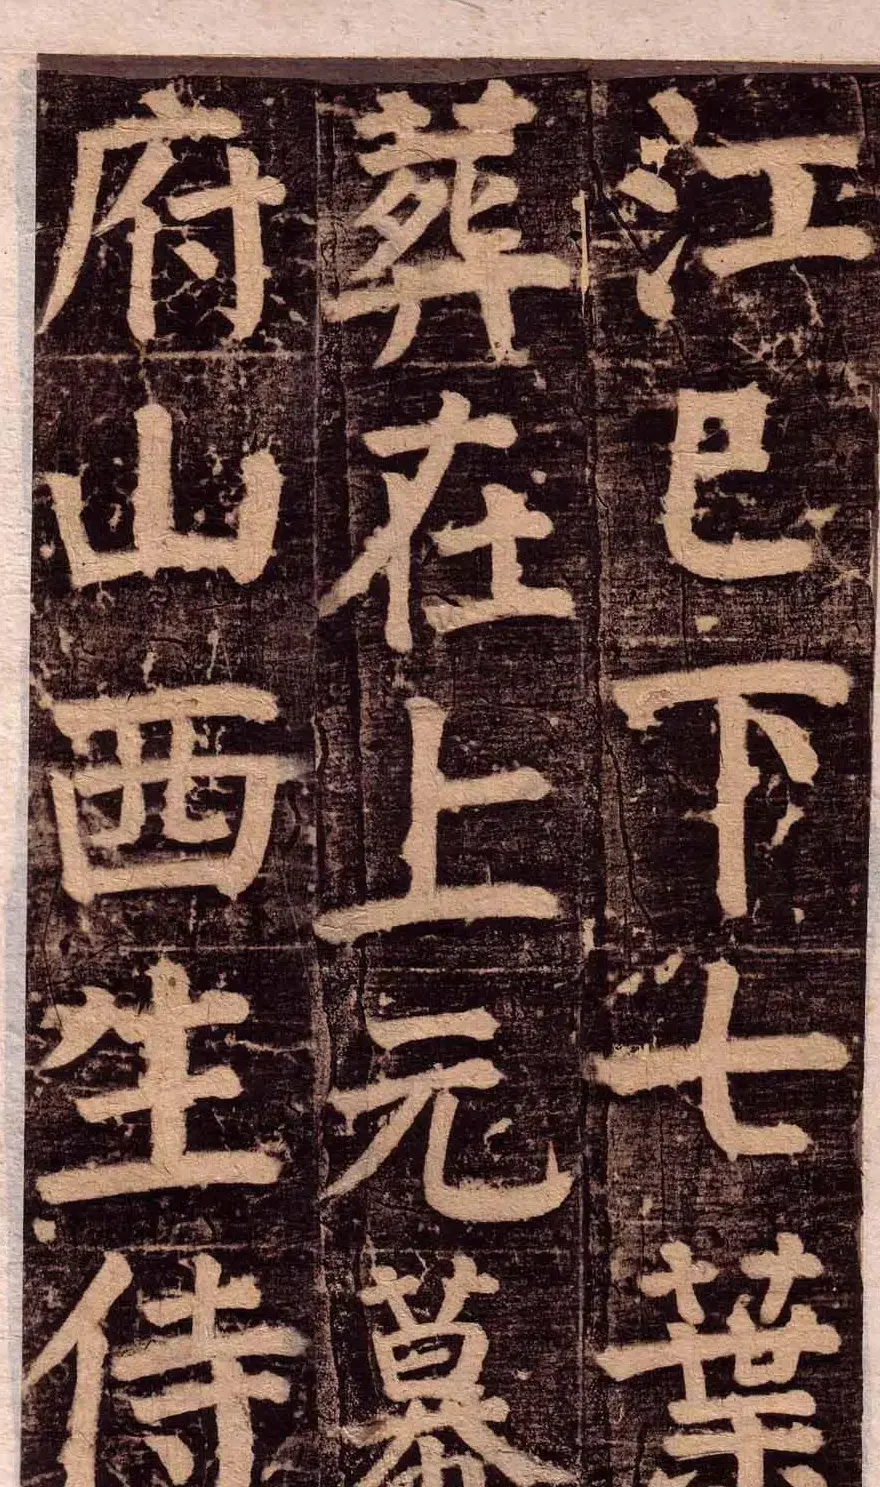 江巳下七葉
葬在上元幕
府山西生侍